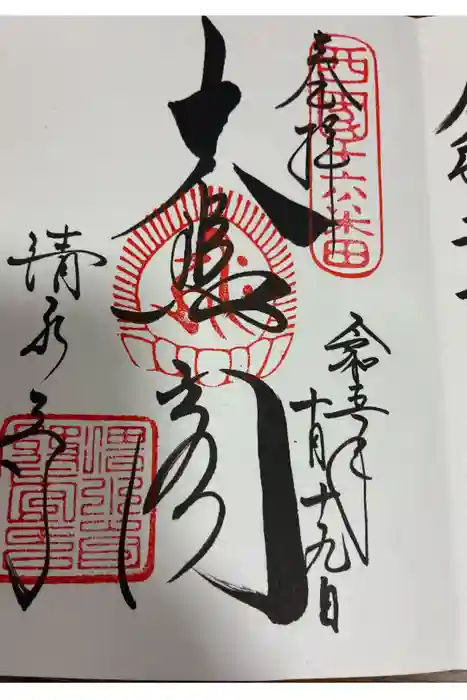 西国十六番
奉拝
令和五年
十月十九日
大悲閣
清水寺